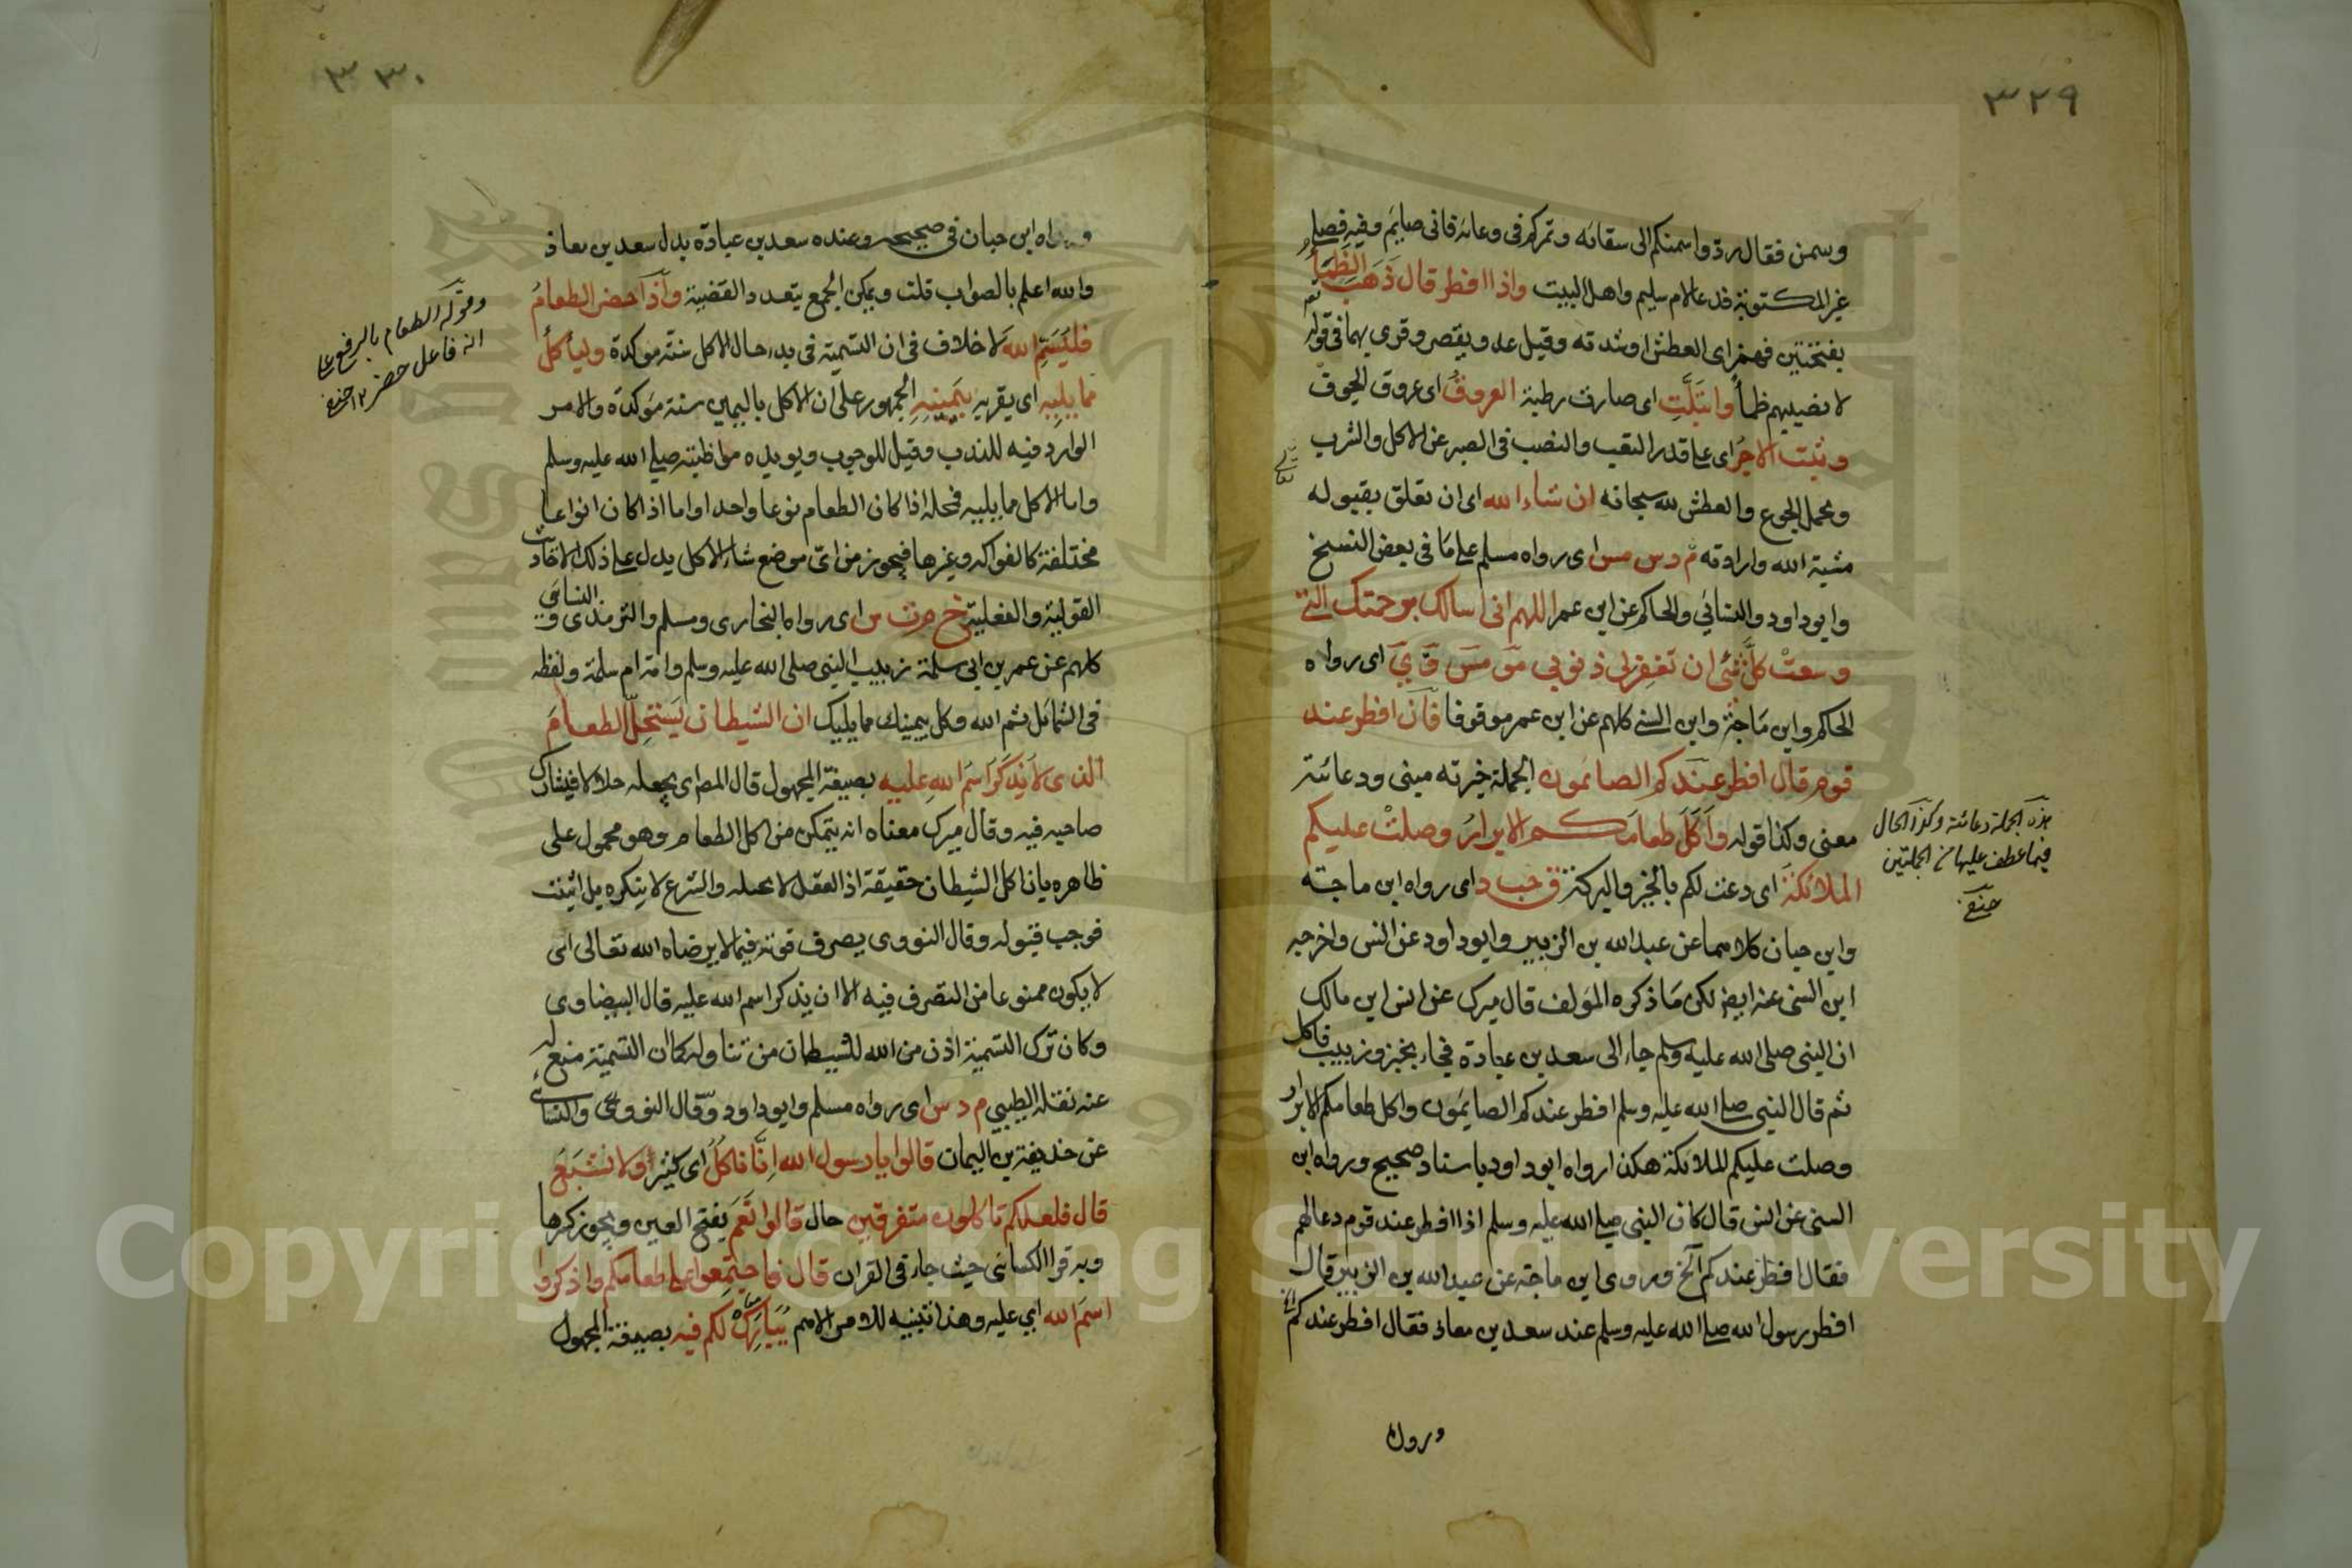 ٣٢٩
وسمن فقال ردوا سمنكم الى سقائه وتمركم فى وعائه فانى صايم وفيه فصلى
غير المكتوبة فدعا لام سليم واهل البيت واذا افطر قال ذهب الظمأ
بفتحتين فهمز اى العطش او شدته وقيل عد ويقصر وقرى بهما فى قوله
لا يصيبهم ظمأ وابتلت اى صارت رطبة العروق اى عروق الجوف
وثبت الاجر اى على قدر التعب والنصب فى الصبر عن الاكل والشرب
وتحمل الجوع والعطش لله سبحانه ان شاء الله اى ان تعلق بقبوله
مشية الله وارادته م د س مس اى رواه مسلم على ما فى بعض النسخ
وابو داود والنسائي والحاكم عن ابن عمر اللهم انى اسالك برحمتك التى
وسعت كل شئ ان تغفر لى ذنوبي مو مس ق ي اى رواه
الحاكم وابن ماجة وابن السنى كلهم عن ابن عمر موقوفا فان افطر عند
قوم قال افطر عندكم الصائمون الجملة خبرته مبنى ودعائية
معنى وكذا قوله واكل طعامكم الابرار وصلت عليكم
الملائكة اى دعت لكم بالخير والبركة ق حب د اى رواه ابن ماجة
وابن حبان كلاهما عن عبد الله بن الزبير وابو داود عن انس واخرجه
ابن السنى عنه ايضا لكن ما ذكره المؤلف قال ميرك عن انس ابن مالك
ان النبى صلى الله عليه وسلم جاء الى سعد بن عبادة فجاء بخبز وزبيب فاكل
ثم قال النبى صلى الله عليه وسلم افطر عندكم الصايمون واكل طعامكم الابرار
وصلت عليكم الملائكة هكذا رواه ابو داود باسناد صحيح ورواه ابن
السنى عن انس قال كان النبى صلى الله عليه وسلم اذا افطر عند قوم دعا لهم
فقال افطر عندكم الخ وروى ابن ماجة عن عبد الله بن الزبير قال
افطر رسول الله صلى الله عليه وسلم عند سعد بن معاذ فقال افطر عندكم
هذه الجملة دعائية وكذا الحال
فيما عطف عليها من الجملتين
حنفى
ورواه
٣٣٠
ورواه ابن حبان فى صحيحه وعنده سعد بن عبادة بدل سعد بن معاذ
والله اعلم بالصواب قلت ويمكن الجمع بتعدد القضية واذا حضر الطعام
فليسم الله لا خلاف فى ان التسمية فى بدء حال الاكل سنة موكدة وليأكل
مما يليه اى يقربه بيمينه الجمهور على ان الاكل باليمين سنة موكدة والامر
الوارد فيه للندب وقيل للوجوب ويويده مواظبته صلى الله عليه وسلم
واما الاكل مما يليه فمحله اذا كان الطعام نوعا واحدا واما اذا كان انواعا
مختلفة كالفواكه وغيرها فيجوز من اى موضع شاء الاكل يدل على ذلك الاحاديث
القولية والفعلية خ م ت س اى رواه البخارى ومسلم والترمذى والنسائى
كلهم عن عمر بن ابى سلمة زبيب النبى صلى الله عليه وسلم وامه ام سلمة ولفظه
فى الشمائل بسم الله وكل بيمينك مما يليك ان الشيطان يستحل الطعام
الذى لا يذكر اسم الله عليه بصيغة المجهول قال المص اى يجعله حلالا فيشارك
صاحبه فيه وقال ميرك معناه انه يتمكن من اكل الطعام وهو محمول على
ظاهره بان اكل الشيطان حقيقة اذ العقل لا يحيله والشرع لا ينكره بل اثبت
فوجب قبوله وقال النووى يصرف قوته فيما لا يرضاه الله تعالى اى
لا يكون ممنوعا من التصرف فيه الا ان يذكر اسم الله عليه قال البيضاوى
وكان ترك التسمية اذن من الله للشيطان من تناوله كما ان التسمية منع له
عنه نقله الطيبي م د س اى رواه مسلم وابو داود وقال النووى والنسائى
عن حذيفة بن اليمان قالوا يا رسول الله انا ناكل اى كثيرا ولا نشبع
قال فلعلكم تاكلون متفرقين حال قالوا نعم بفتح العين ويجوز كسرها
وبه قرا الكسائى حيث جاء فى القران قال فاجتمعوا على طعامكم واذكروا
اسم الله اي عليه وهذا تنبيه للامر الاهم يبارك لكم فيه بصيغة المجهول
وقوله الطعام بالرفع على
انه فاعل حضر ١٢ حنفى
Copyright © King Saud University